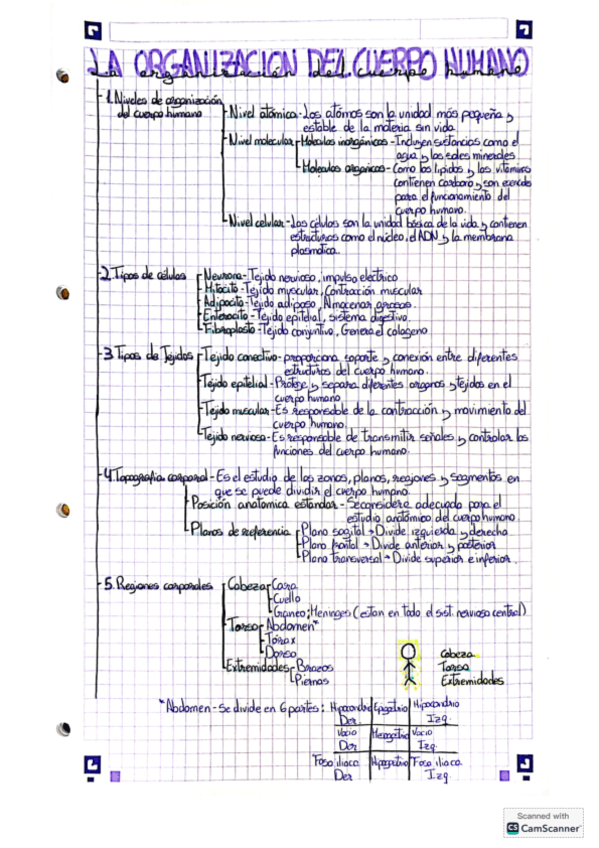 LA ORGANIZACION DEL CUERPO HUMANO
La organización del cuerpo humano
1. Niveles de organización
del cuerpo humano
Nivel atómico - Los atómos son la unidad más pequeña y
estable de la materia sin vida.
Nivel molecular
Moleculas inorgánicas - Incluyen sustancias como el
agua y las sales minerales
Moleculas organicas - Como los lipidos y las vitaminas
contienen carbono y son esencidas
para el funcionamiento del
cuerpo humano.
Nivel celular - Las células son la unidad básica de la vida y contienen
estructuras como el núcleo, el ADN y la membrana
plasmatica.
2. Tipos de células
Neurona - Tejido nervioso, impulso electrico
Miocito - Tejido muscular, Contracción muscular
Adipocito - Tejido adiposo, Almacenar grasas.
Enterocito - Tejido epitelial, sistema digestivo.
Fibroplasto - Tejido conjuntivo, Genera el colageno
3 Tipos de Tejidos
Tejido conectivo - proporciona soporte y conexión entre diferentes
estructuras del cuerpo humano.
Tejido epitelial - Protege y separa diferentes organos y tejidos en el
cuerpo humano.
Tejido muscular - Es responsable de la contracción y movimiento del
cuerpo humano.
Tejido nervioso - Es responsable de transmitir señales y controlar las
funciones del cuerpo humano.
4. Topografia corporal - Es el estudio de las zonas, planos, regiones y segmentos en
que se puede dividir el cuerpo humano
Posición anatomica estandar - Se considera adecuada para el
estudio anatómico del cuerpo humano.
Planos de referencia
Plano sagital → Divide izquierda y derecha
Plano frontal → Divide anterior y posterior
Plano transversal → Divide superior e inferior.
5. Regiones corporales
Cabeza
Cara
Cuello
Craneo; Meninges (estan en todo el sist. nervioso central)
Torso
Abdomen*
Tórax
Dorso
Extremidades
Brazos
Piernas
Cabeza
Torso
Extremidades
*Abdomen - Se divide en 6 partes:
Hipocondrio Der. Epigstrio Hipocondrio Izq.
Vacio Der Mesogastrio Vacio Izq.
Fosa iliaca Der Hipogastrio Fosa iliaca Izq.
Scanned with
CS CamScanner